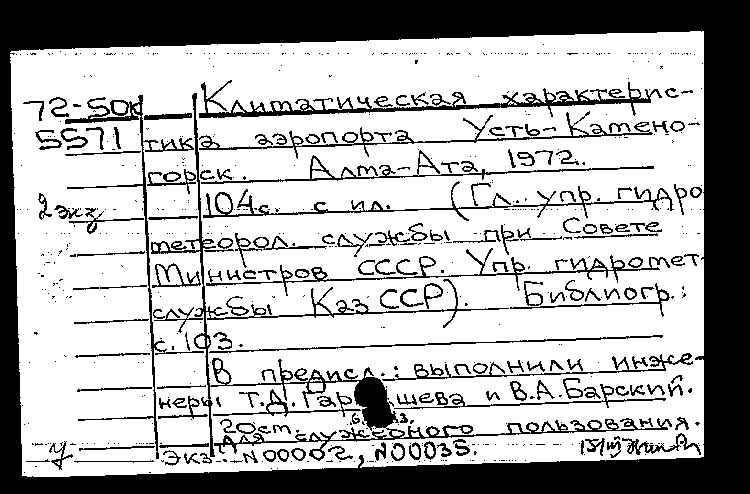 72-50к Климатическая характерис-
5571 тика аэропорта Усть-Камено-
горск. Алма-Ата, 1972.
2 экз 104с. с ил. (Гл. упр. гидро
метеорол. службы при Совете
Министров СССР. Упр. гидромет-
службы Каз ССР). Библиогр.:
с. 103.
В предисл.: выполнили инже-
неры Т.Д. и В.А.Барский.
20см.
Для служебного пользования.
Экз. N00002, N00035.